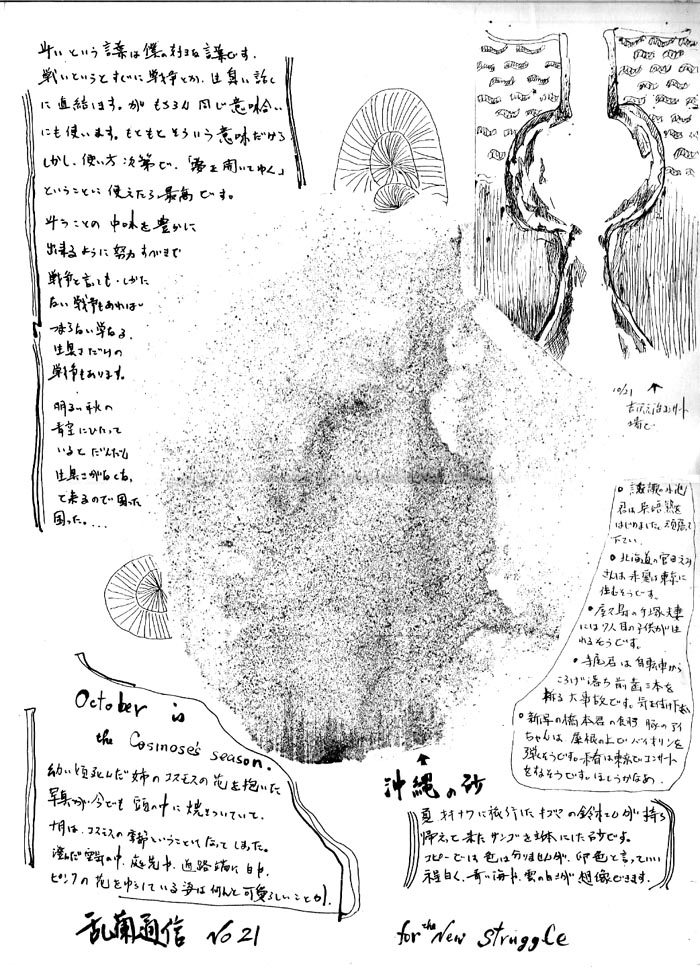 斗いという言葉は僕の好きな言葉です。
戦いというとすぐに戦争とか、生臭い話し
に直結します。が もちろん 同じ意味合い
にも使います。もともとそういう意味だけど
しかし、使い方次第で、「愛を開いてゆく」
ということに使えたら最高です。
斗うことの中味を豊かに
出来るように努力すべきで
戦争と言っても・しかた
ない戦争もあれば
つまらない単なる
生臭さだけの
戦争もあります。
明るい秋の
青空にひたって
いるとだんだん
生臭さがなくなっ
て来るので困った
困った。...
10/21
コンサート
会場で
君は
はじめました。頑張って
下さい。
北海道の宮田
さんは来春は東京に
住むそうです。
屋久島の手塚夫妻
には7人目の子供が生
れるそうです。
寺尾君は自転車から
ころげ落ち前歯二本を
折る大事故です。気を付け
新年の橋本君の
ちゃんは、屋根の上でバイオリンを
弾くそうです。来春は東京でコンサート
をするそうです。ほんとうかなあ。
October is
the Cosmoses season.
幼い頃死んだ姉のコスモスの花を抱いた
写真が今でも頭の中に焼きついていて、
十月は、コスモスの季節ということになってしまった。
澄んだ空気の中、庭先や、道路端に白や、
ピンクの花をゆらしている姿は何んと可愛らしいことか。
沖縄の砂
夏 オキナワに旅行した の鈴木さんが持ち
帰えって来たサンゴを主体にした砂です。
コピーでは色は分りませんが、卵色と言っていい
程白く、青い海や、雲の白さが想像できます。
乱蘭通信 No 21
for the New Struggle